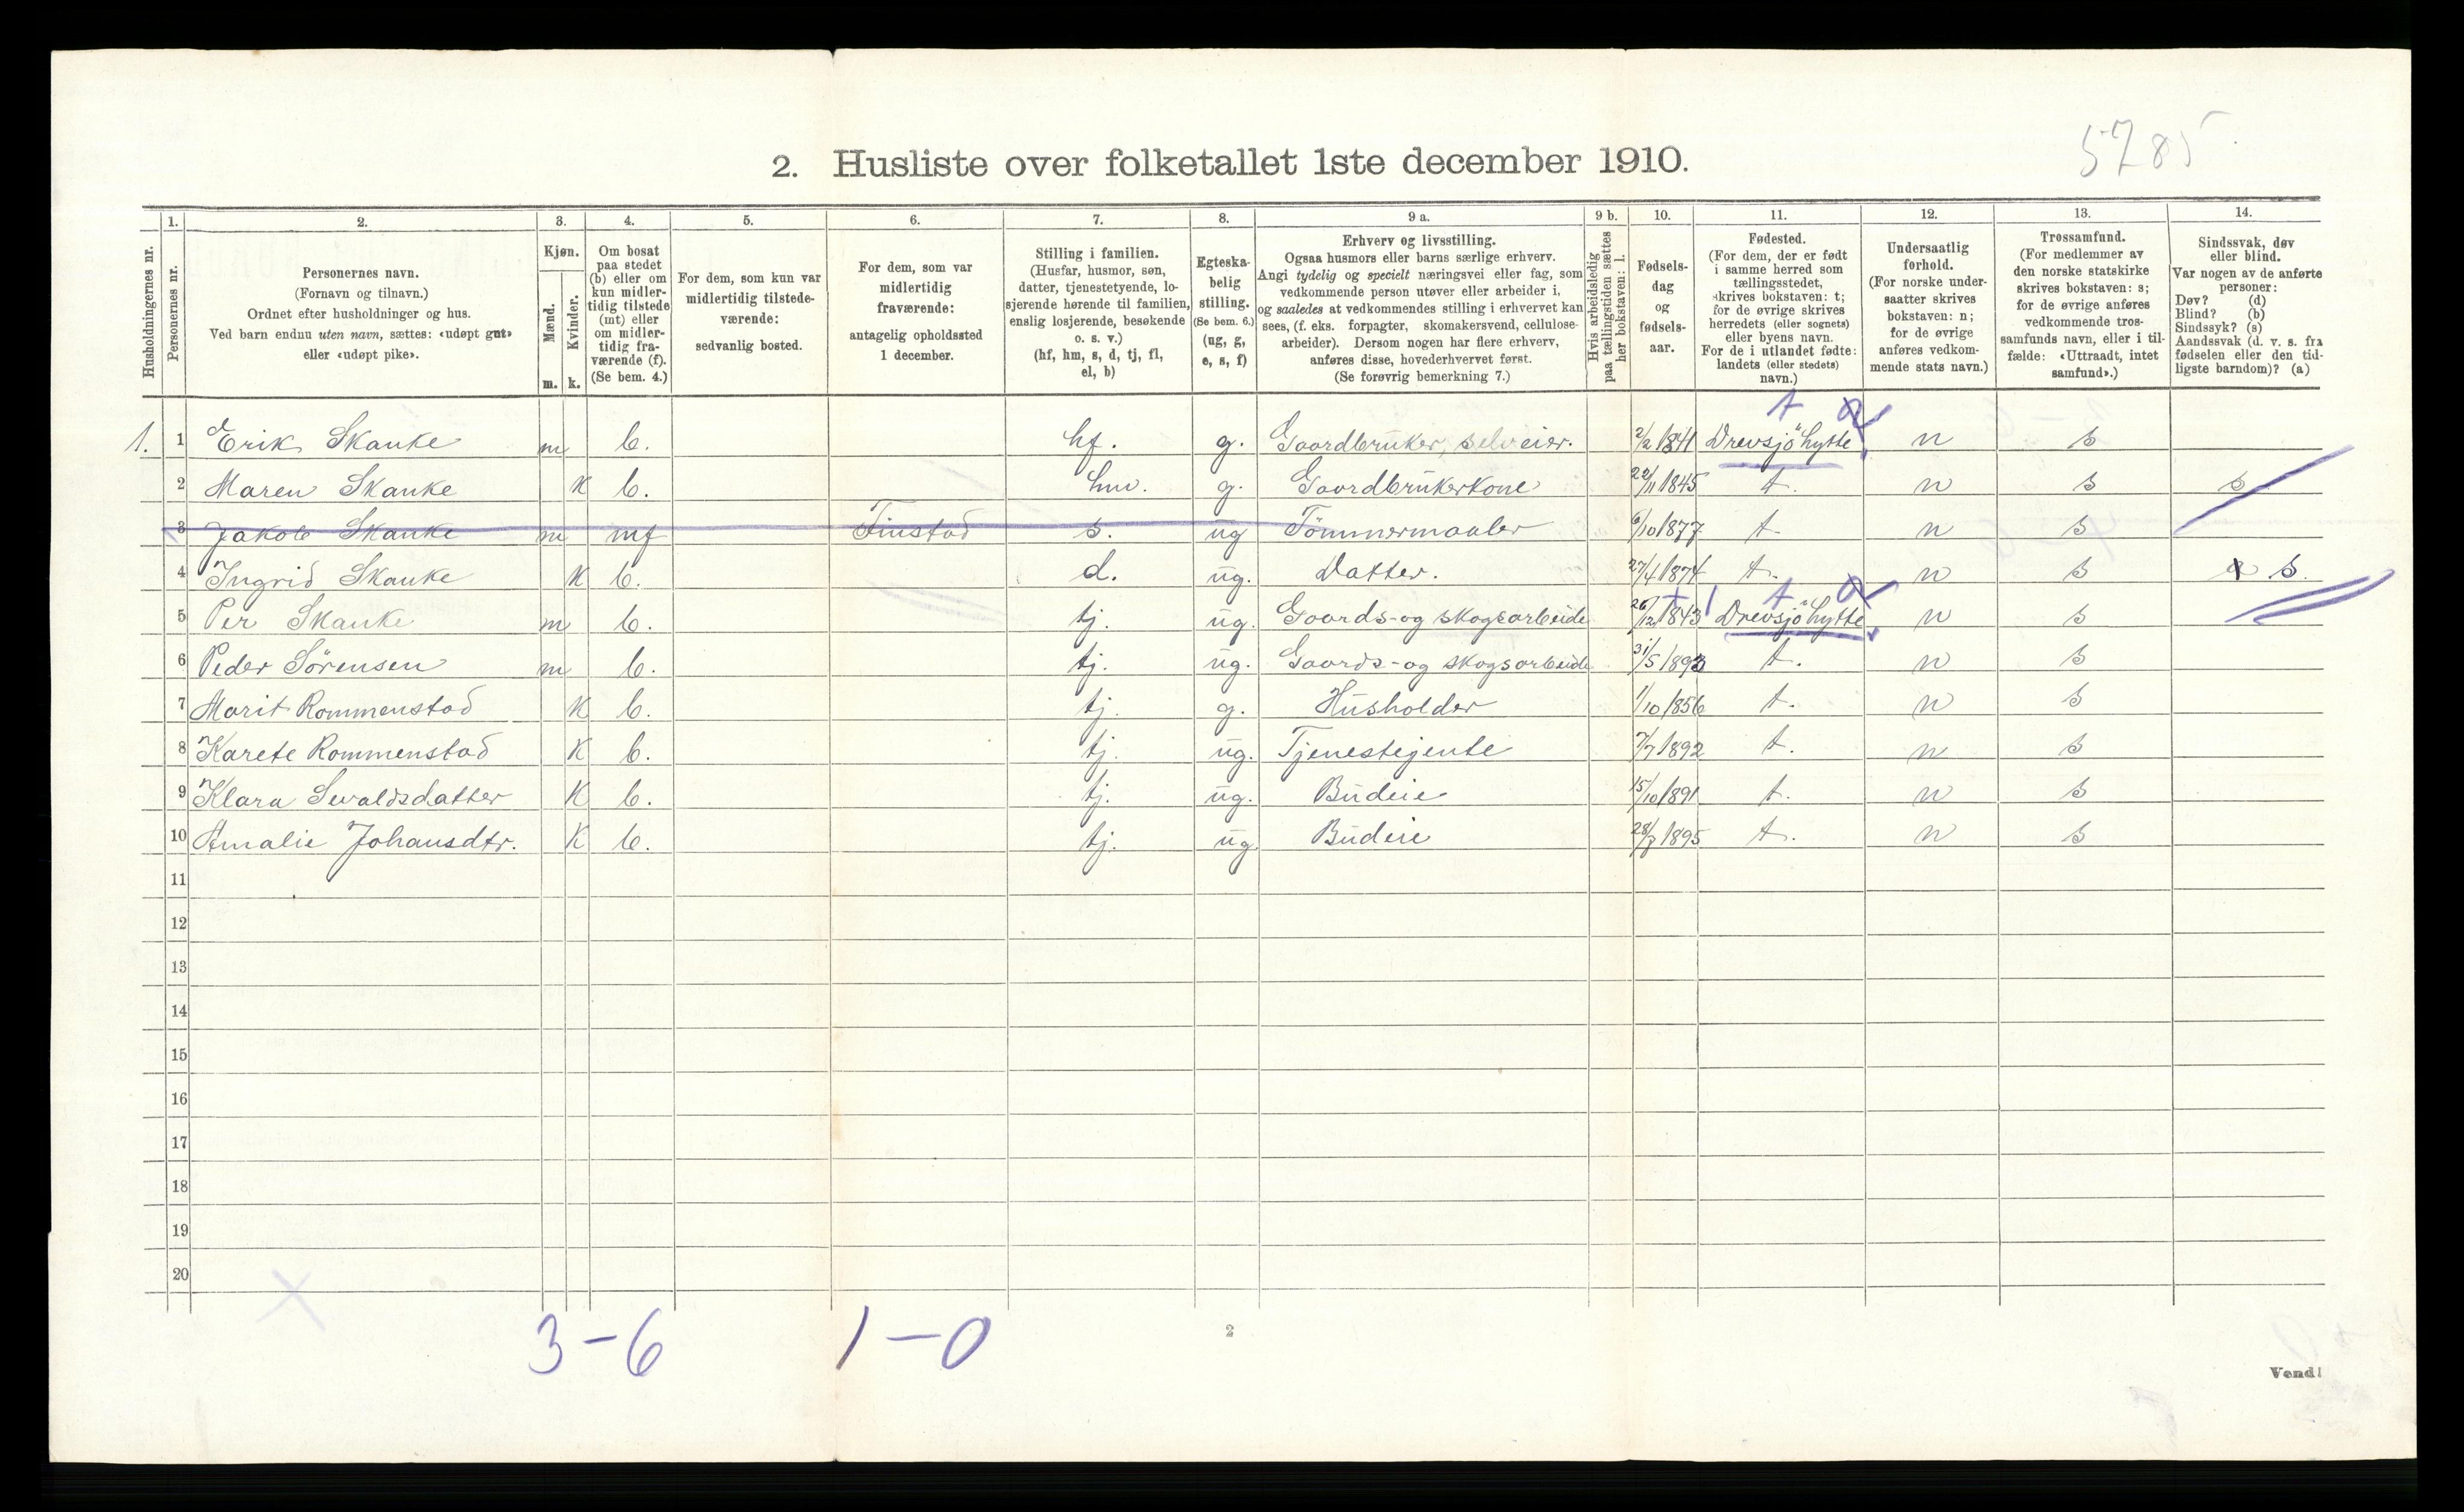 5785
2. Husliste over folketallet 1ste december 1910.
Husholdningernes nr.
1.
Personernes nr.
2.
Personernes navn.
(Fornavn og tilnavn.)
Ordnet efter husholdninger og hus.
Ved barn endnu uten navn, sættes: «udøpt gut»
eller «udøpt pike».
3.
Kjøn.
Mænd.
Kvinder.
m. k.
4.
Om bosat
paa stedet
(b) eller om
kun midler-
tidig tilstede
(mt) eller
om midler-
tidig fra-
værende (f).
(Se bem. 4.)
5.
For dem, som kun var
midlertidig tilstede-
værende:
sedvanlig bosted.
6.
For dem, som var
midlertidig
fraværende:
antagelig opholdssted
1 december.
7.
Stilling i familien.
(Husfar, husmor, søn,
datter, tjenestetyende, lo-
sjerende hørende til familien,
enslig losjerende, besøkende
o. s. v.)
(hf, hm, s, d, tj, fl,
el, b)
8.
Egteska-
belig
stilling.
(Se bem. 6.)
(ug, g,
e, s, f)
9 a.
Erhverv og livsstilling.
Ogsaa husmors eller barns særlige erhverv.
Angi tydelig og specielt næringsvei eller fag, som
vedkommende person utøver eller arbeider i,
og saaledes at vedkommendes stilling i erhvervet kan
sees, (f. eks. forpagter, skomakersvend, cellulose-
arbeider). Dersom nogen har flere erhverv,
anføres disse, hovederhvervet først.
(Se forøvrig bemerkning 7.)
9 b.
Hvis arbeidsledig
paa tællingstiden sættes
her bokstaven: l.
10.
Fødsels-
dag
og
fødsels-
aar.
11.
Fødested.
(For dem, der er født
i samme herred som
tællingsstedet,
skrives bokstaven: t;
for de øvrige skrives
herredets (eller sognets)
eller byens navn.
For de i utlandet fødte:
landets (eller stedets)
navn.)
12.
Undersaatlig
forhold.
(For norske under-
saatter skrives
bokstaven: n;
for de øvrige
anføres vedkom-
mende stats navn.)
13.
Trossamfund.
(For medlemmer av
den norske statskirke
skrives bokstaven: s;
for de øvrige anføres
vedkommende tros-
samfunds navn, eller i til-
fælde: «Uttraadt, intet
samfund».)
14.
Sindssvak, døv
eller blind.
Var nogen av de anførte
personer:
Døv? (d)
Blind? (b)
Sindssyk? (s)
Aandssvak (d. v. s. fra
fødselen eller den tid-
ligste barndom)? (a)
t
1. 1 Erik Skanke m b. hf. g. Gaardbruker, selveier. 2/2 1841 Drevsjö hytte n s
2 Maren Skanke K b. hm. g. Gaardbrukerkone 22/11 1845 t. n s s
3 Jakob Skanke m mf Finstad s. ug Tömmermaaler 6/10 1877 t. n s
4 Ingrid Skanke K b. d. ug. Datter. 27/4 1874 t. n s s.
t
5 Per Skanke m b. tj. ug. Gaards-og skogsarbeide 26/12 1843 Drevsjö hytte n s
6 Peder Sörensen m b. tj. ug. Gaards-og skogsarbeide 31/5 1893 t. n s
7 Marit Rommenstad K b. tj. g. Husholder 1/10 1856 t. n s
8 Karete Rommenstad K b. tj. ug. Tjenestejente 7/7 1892 t. n s
9 Klara Sevaldsdatter K b. tj. ug. Budeie 15/10 1891 t. n s
10 Amalie Johansdtr. K b. tj. ug. Budeie 1895 t. n s
11
12
13
14
15
16
17
18
19
20
3-6 1-0
2
Vend!